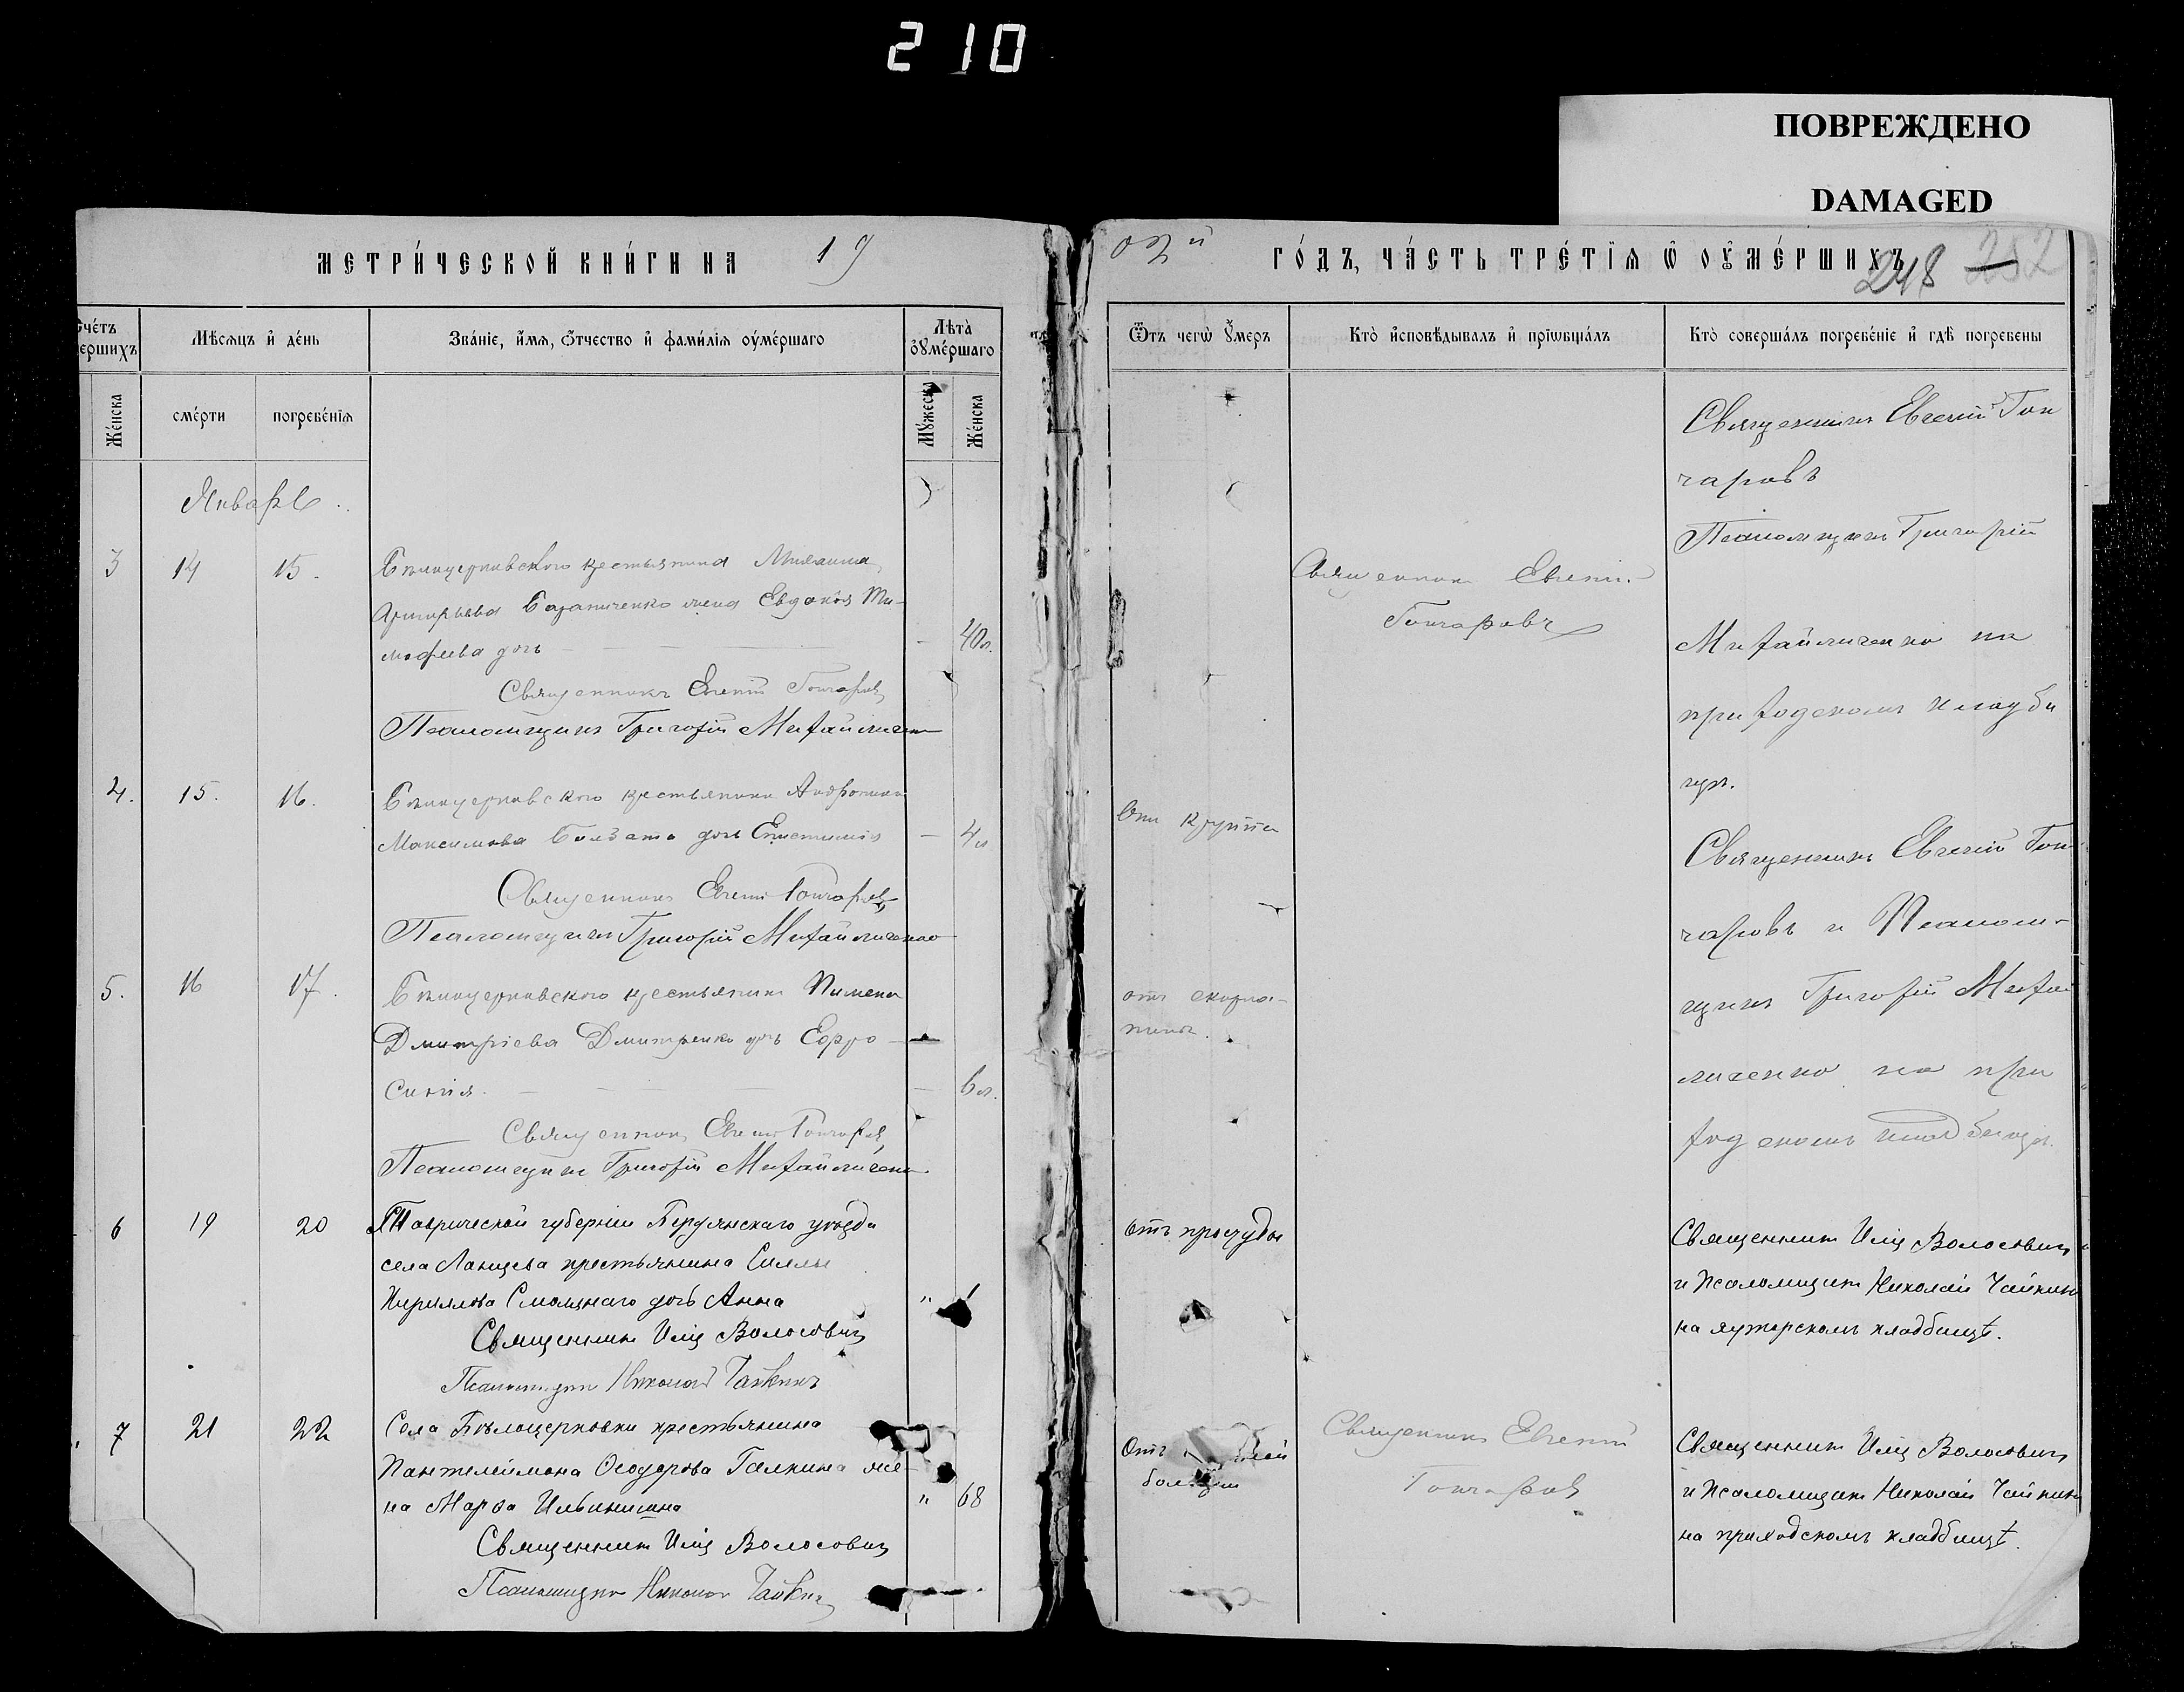 210
ПОВРЕЖДЕНО
DAMAGED
МЕТРИ́ЧЕСКОЙ КНИ́ГИ НА 19
03й ГО́ДЪ, ЧА́СТЬ ТРЕ́ТІѦ Ѡ ОУ҆МЕ́РШИХЪ
248 252
Счетъ ершихъ
Мѣсѧцъ и҆ де́нь
Зва́ніе, и҆́мѧ, ѻ҆́тчество и҆ фами́лія оу҆ме́ршаго
Лѣта̀ оу҆ме́ршаго
Же́нска
сме́рти
погребе́нїѧ
Мꙋ́жеска
Же́нска
Ѿ чегѡ̀ оу҆́меръ
Кто̀ и҆сповѣ́дывалъ и҆ прїѡбща́лъ
Кто̀ соверша́лъ погребе́нїе и҆ гдѣ̀ погребены
Январь
3 14 15.
Бѣлоцерковского крестьянина
Григорьева жена Евдокія Ти-
мофеева дочь — 40 л.
Священникъ Евгеній Гончаровъ
Псаломщикъ Григорій Михайличенко
Священник Евгений
Гончаровъ
Священникъ Евгеній Гон
чаровъ
Псаломщикъ Григорій
Михайличенко на
приходскомъ кладби
щѣ.
4. 15. 16.
Бѣлоцерковского крестьянина Андроника
Максимова дочь Епистимія — 4 л
Священникъ Евгеній Гончаровъ
Псаломщикъ Григорій Михайличенко
Отъ крупа
Священникъ Евгеній Гон
чаровъ и Псалом-
щикъ Григорій Михай
личенко на при
ходскомъ кладбищѣ.
5. 16 17.
Бѣлоцерковского крестьянина Пимена
Дмитріева Дмитренко дочь Евфро
синія. — 6 л.
Священникъ Евгеній Гончаровъ
Псаломщикъ Григорій Михайличенко
отъ скарла-
тины.
6 19 20
Таврической губерніи Бердянскаго уѣзда
села крестьянина Силы
Кириллова Смолянаго дочь Анна " 1
Священникъ Илія Волосовичъ
Псаломщикъ Николай Чайкинъ
отъ простуды
Священникъ Илія Волосовичъ
и Псаломщикъ Николай Чайкинъ
на хуторскомъ кладбищѣ.
7 21 22
Села Бѣлоцерковки крестьянина
Пантелеймона Ѳеодорова Галкина же-
на Марѳа Ильинична " 68
Священникъ Илія Волосовичъ
Псаломщикъ Николай Чайкинъ
Отъ
болѣзни
Священникъ Евгений
Гончаровъ
Священникъ Илія Волосовичъ
и Псаломщикъ Николай Чайкинъ
на приходскомъ кладбищѣ.